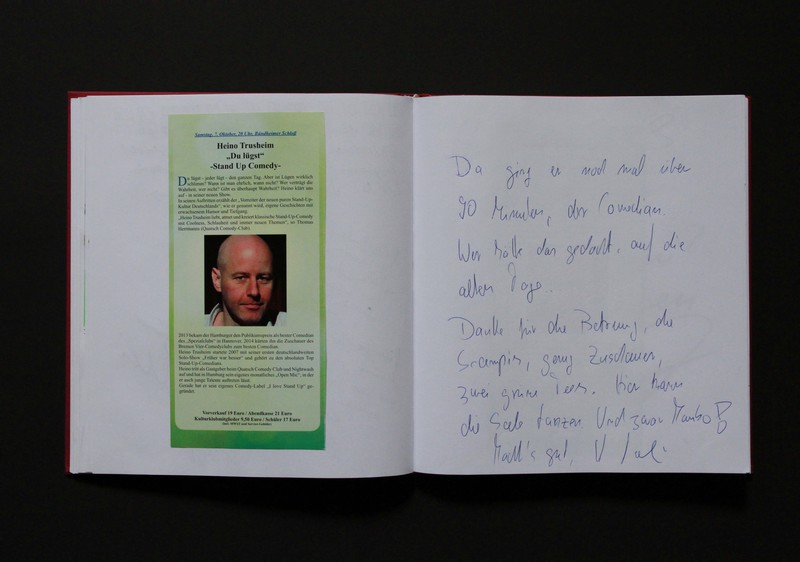 Samstag, 7. Oktober, 20 Uhr, Ründlheimer Schloß
Heino Trusheim
„Du lügst“
-Stand Up Comedy-
Du lügst - jeder lügt - den ganzen Tag. Aber ist Lügen wirklich
schlimm? Wann ist man ehrlich, wann nicht? Wer verträgt die
Wahrheit, wer nicht? Gibt es überhaupt Wahrheit? Heino klärt uns
auf - in seiner neuen Show.
In seinen Auftritten erzählt der „Vorreiter der neuen puren Stand-Up-
Kultur Deutschlands“, wie er genannt wird, eigene Geschichten mit
erwachsenem Humor und Tiefgang.
„Heino Trusheim liebt, atmet und kreiert klassische Stand-Up-Comedy
mit Coolness, Schlauheit und immer neuen Themen“, so Thomas
Herrmanns (Quatsch Comedy-Club).
2013 bekam der Hamburger den Publikumspreis als bester Comedian
des „Spezialclubs“ in Hannover, 2014 kürten ihn die Zuschauer des
Bremer Vier-Comedyclubs zum besten Comedian.
Heino Trusheim startete 2007 mit seiner ersten deutschlandweiten
Solo-Show „Früher war besser“ und gehört zu den absoluten Top
Stand-Up-Comedians.
Heino tritt als Gastgeber beim Quatsch Comedy Club und Nightwash
auf und hat in Hamburg sein eigenes monatliches „Open Mic“, in der
er auch junge Talente auftreten lässt.
Gerade hat er sein eigenes Comedy-Label „I love Stand Up“ ge-
gründet.
Vorverkauf 19 Euro / Abendkasse 21 Euro
Kulturklubmitglieder 9,50 Euro / Schüler 17 Euro
Da ging er noch mal über
90 Minuten, der Comedian.
Wer hätte das gedacht, auf die
alten Tage..
Danke für die Betreuung, die
Scampis, genug Zuschauer,
zwei grüne Tees. Hier kann
die Seele tanzen. Und zwar Mambo
Macht's gut,